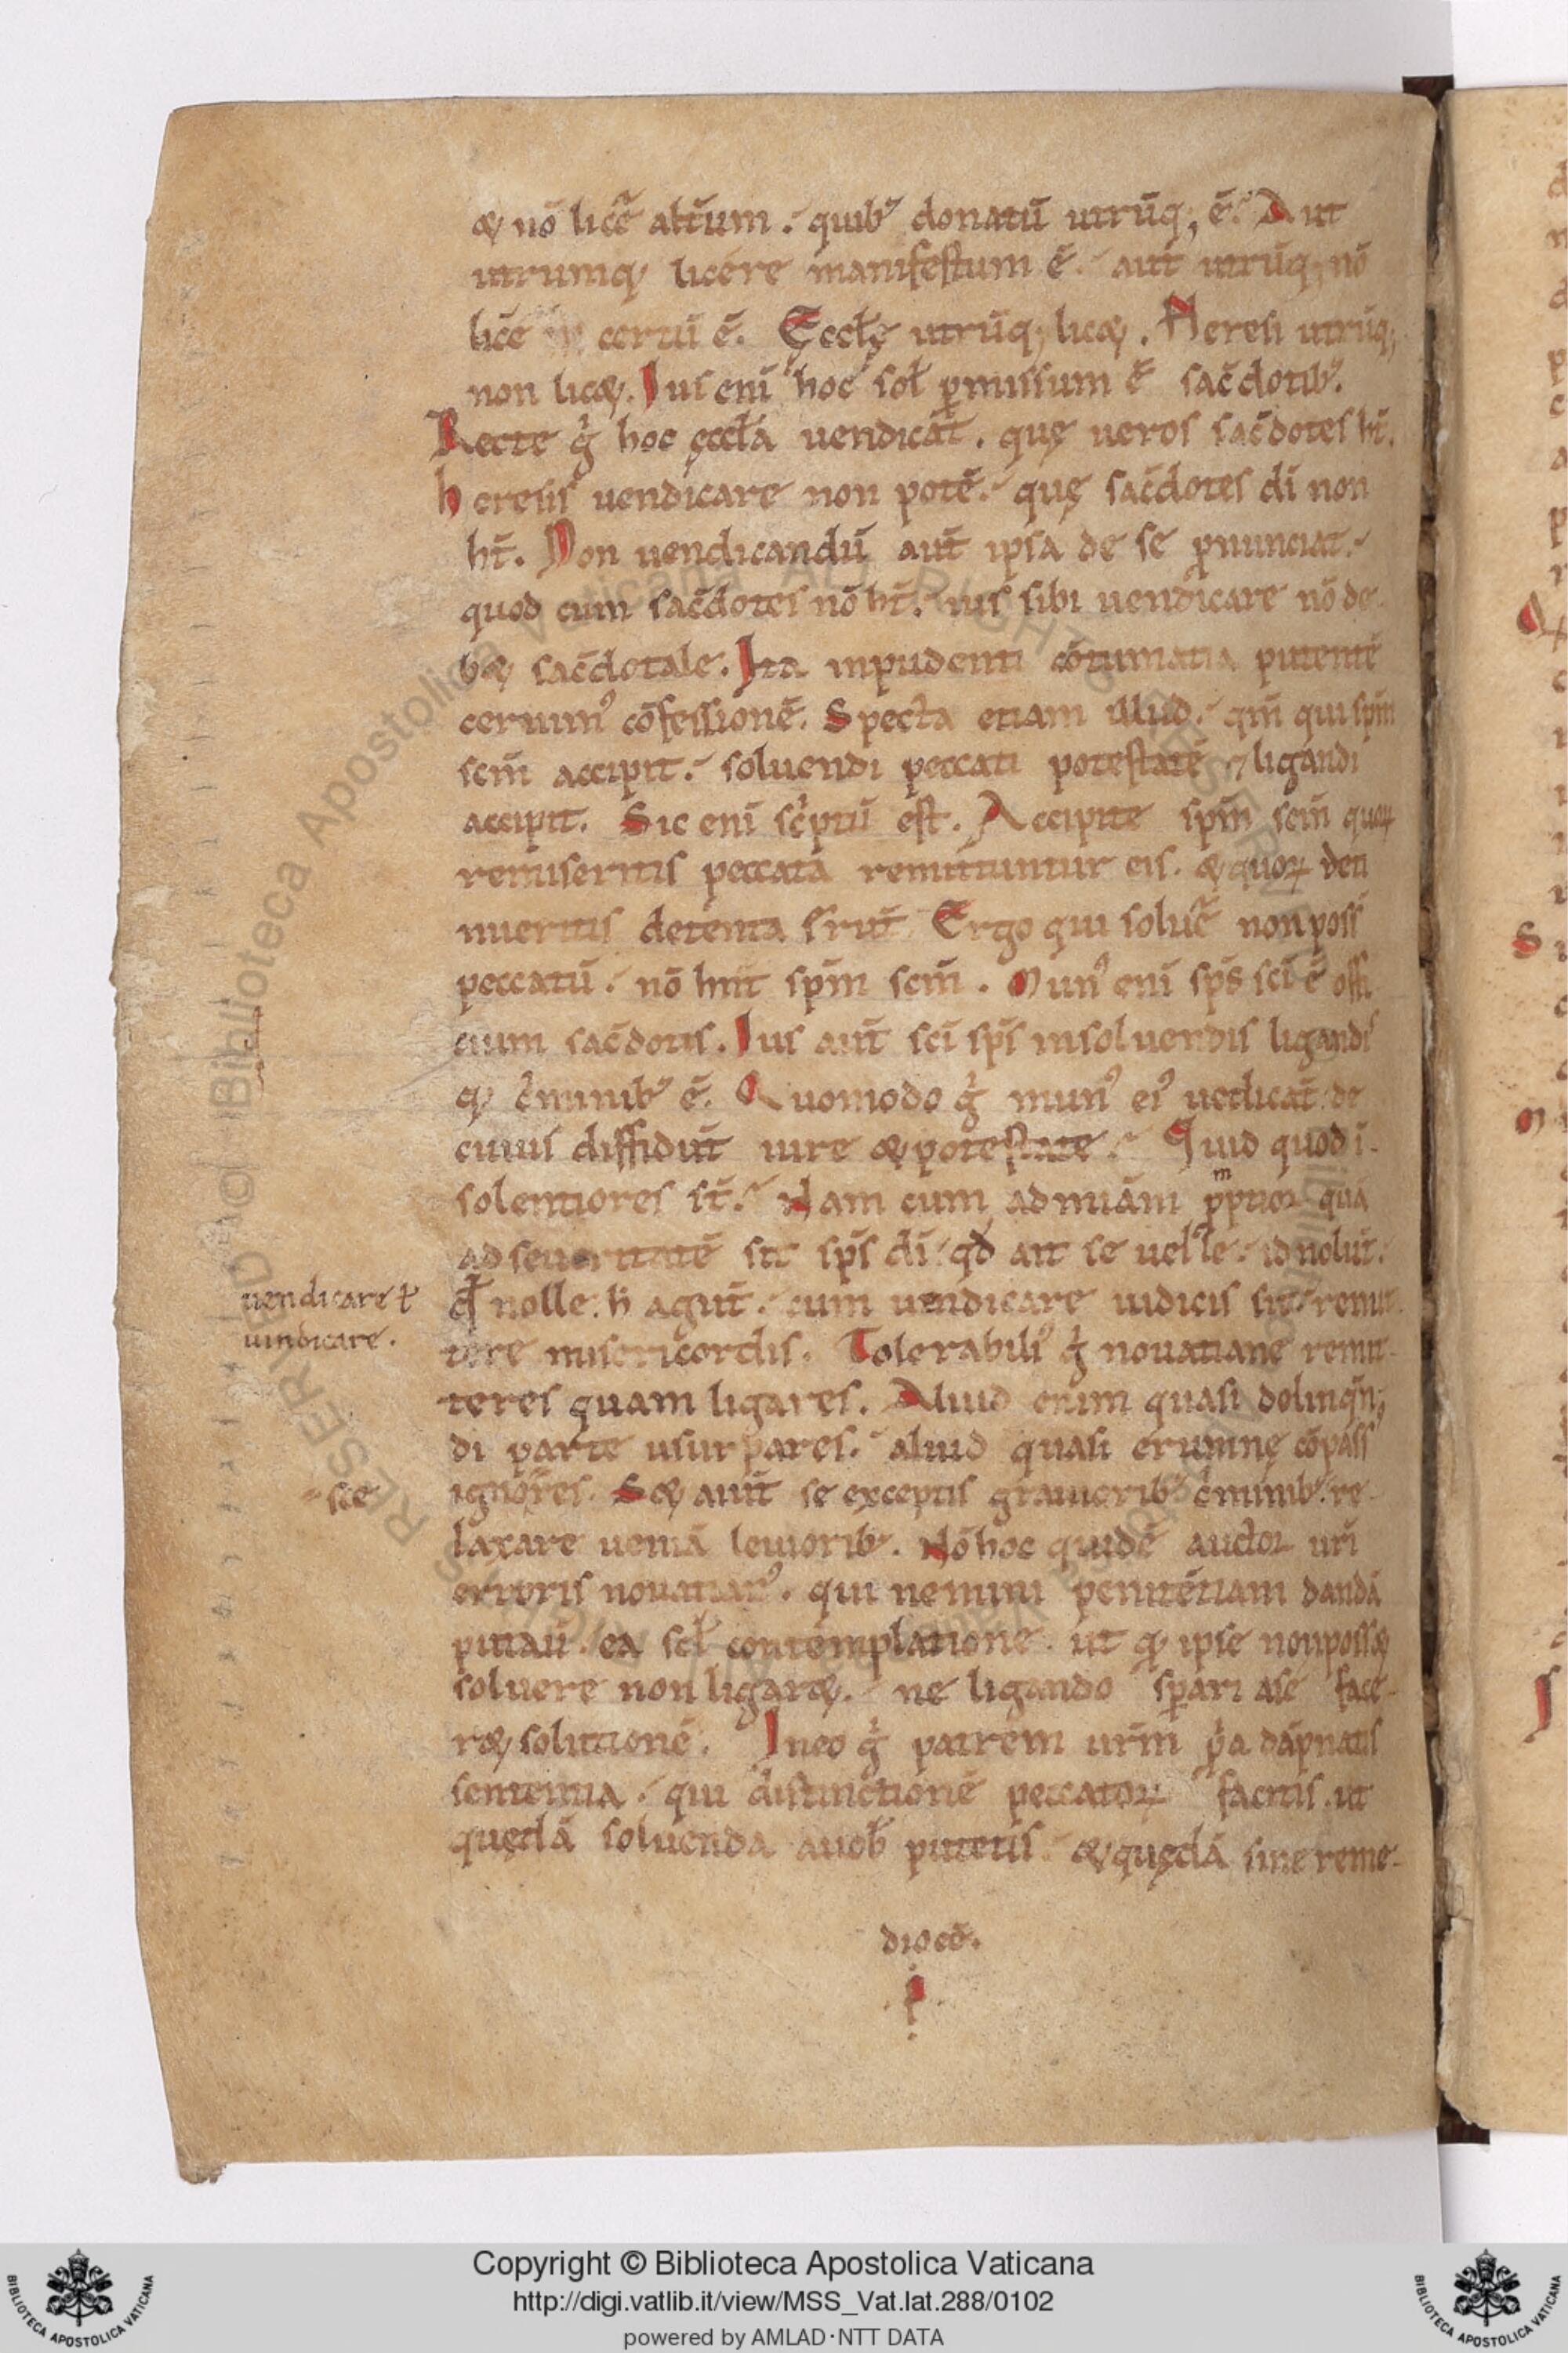 & nō licē alt̄um. quib; donatū utrūq; ē. Aut
utrumq; licere manifestum ē. aut utrūq; nō
licē certū ē. Ęcclę utrūq; lic&. Heresi utrūq;
non lic&. Ius eni hoc sol p̱missum ē sac̄dotib;.
Recte g̊ hoc ęccła uendicat̄. quę ueros sac̄dotes ht̄.
heresis uendicare non potē. quę sac̄dotes dī non
ht̄. Non uendicandū aut̄ ipsa de se p̱nunciat.
quod cum sac̄dotes nō ht̄. ius sibi uendicare nō de
b& sac̄dotale. Ita inpudenti cōtumatia putentē
cernim᾽ cōfessionē. Specta etiam illud. qm̄ qui spm̄
scm̄ accipit. soluendi peccati potestatē ⁊ ligandi
accipit. Sic eni sc̓ptū est. Accipite spm̄ scm̄ quoꝝ
remiseritis peccata remittuntur eis. & quoꝝ deti
nueritis detenta fr̄unt̄. Ergo qui soluē non poss̄
peccatū. nō hnt̄ spm̄ scm̄. Mun᾽ eni sp̄s sci ē offi
cium sac̄dotis. Ius aut̄ sci sp̄s in soluendis ligandis
q; c̓minib; ē. Quomodo g̊ mun᾽ ei᾽ uedicat̄ de
cuius diffidūt iure & potestate. Quid quod ī-
solentiores st̄. Nam cum ad mīam ꝓm̄ptior quā
ad seueritatē sit sp̄s dī. qd̄ ait se uelle. id nolūt.
qđ nolle. h̄ agūt. cum uendicare iudicis sit. remit-
uendicare ł
uindicare.
tere misericordis. Tolerabili᾽ g̊ nouatiane remit-
teres quam ligares. Aliud enim quasi dolinqn̄;
di parte usurpares. aliud quasi erumnę cōpass᾽
ignores. S& aiūt se exceptis grauiorib; c̓minib; re-
- sce
laxare ueniā leuiorib;. Nō hoc quidē auctor ur̄i
erroris nouatian᾽. qui nemini penitētiam dandā
putauī. ea scl̄ contemplatione. ut q; ipse non poss&
soluere non ligar&. ne ligando sp̱ari a se face-
r& solutionē. In eo g̊ patrem ur̄m ꝓ̓a dāpnatis
sententia. qui distinctionē peccatoꝝ facitis. ut
quędā soluenda a uob̄ putetis. & quędā sine reme-
dio cō.